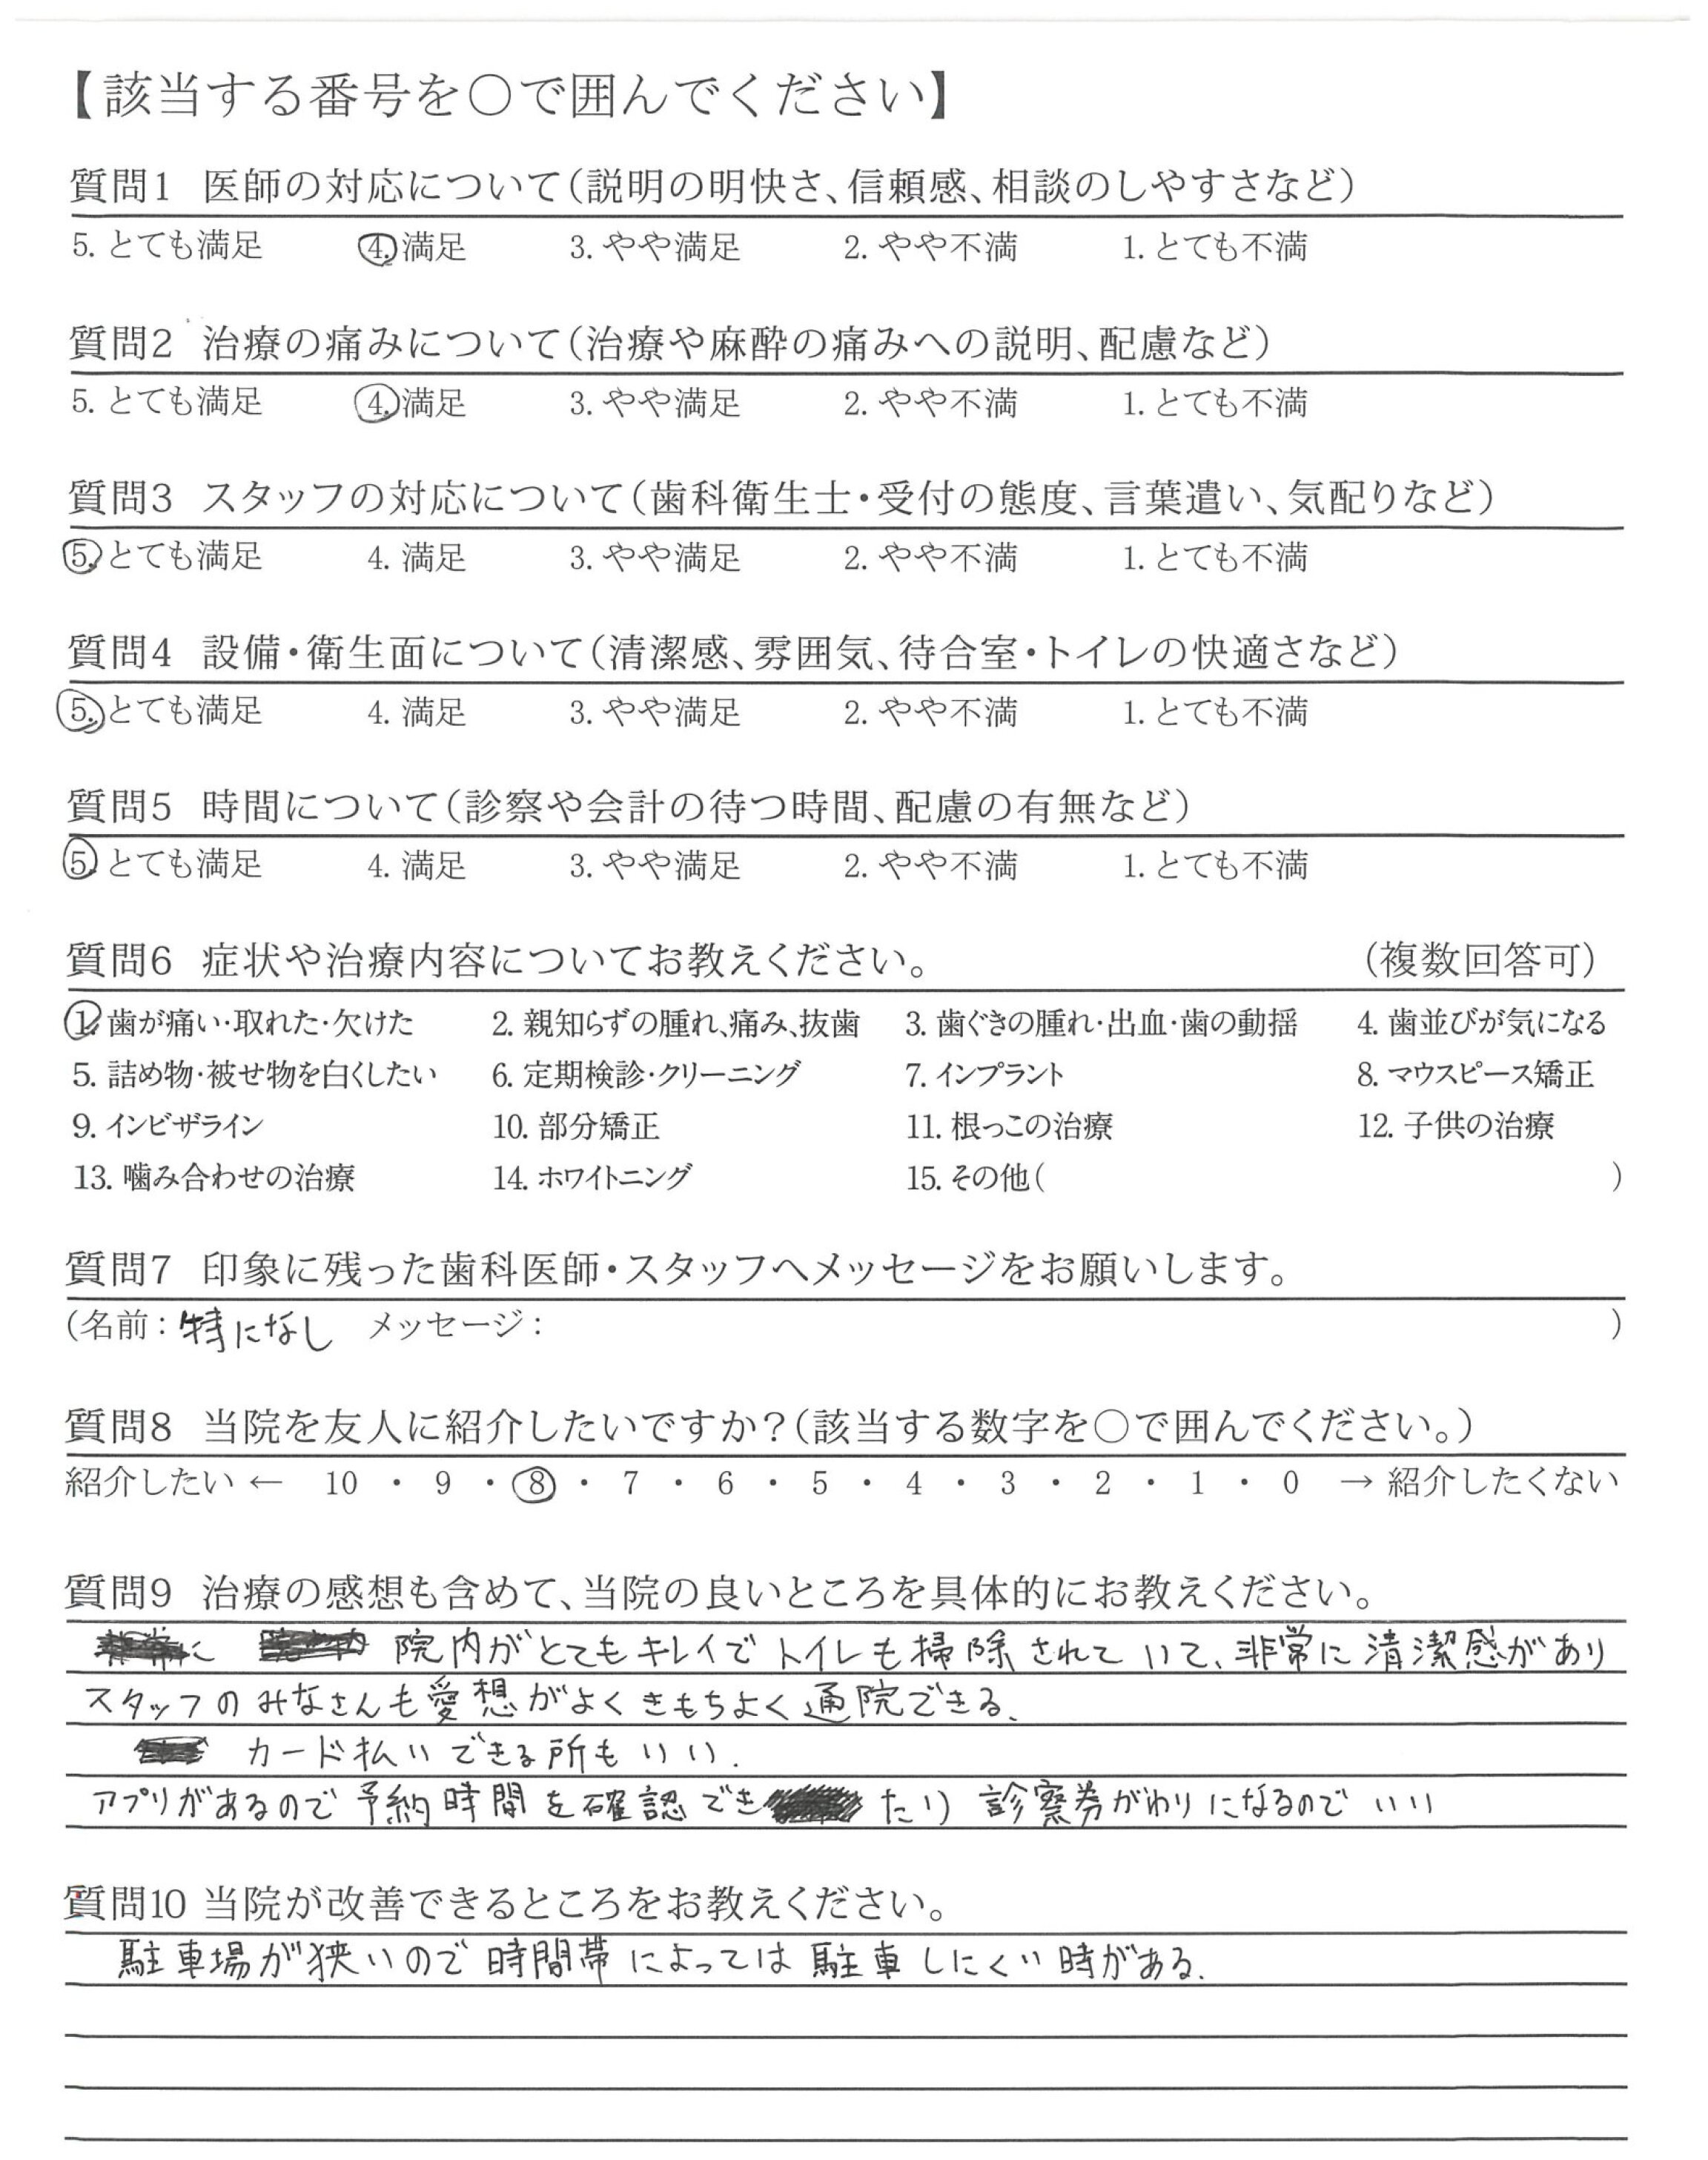 【該当する番号を○で囲んでください】
質問1 医師の対応について(説明の明快さ、信頼感、相談のしやすさなど)
5. とても満足 4. 満足 3. やや満足 2. やや不満 1. とても不満
質問2 治療の痛みについて(治療や麻酔の痛みへの説明、配慮など)
5. とても満足 4. 満足 3. やや満足 2. やや不満 1. とても不満
質問3 スタッフの対応について(歯科衛生士・受付の態度、言葉遣い、気配りなど)
5. とても満足 4. 満足 3. やや満足 2. やや不満 1. とても不満
質問4 設備・衛生面について(清潔感、雰囲気、待合室・トイレの快適さなど)
5. とても満足 4. 満足 3. やや満足 2. やや不満 1. とても不満
質問5 時間について(診察や会計の待つ時間、配慮の有無など)
5. とても満足 4. 満足 3. やや満足 2. やや不満 1. とても不満
質問6 症状や治療内容についてお教えください。 (複数回答可)
1. 歯が痛い・取れた・欠けた 2. 親知らずの腫れ、痛み、抜歯 3. 歯ぐきの腫れ・出血・歯の動揺 4. 歯並びが気になる
5. 詰め物・被せ物を白くしたい 6. 定期検診・クリーニング 7. インプラント 8. マウスピース矯正
9. インビザライン 10. 部分矯正 11. 根っこの治療 12. 子供の治療
13. 噛み合わせの治療 14. ホワイトニング 15. その他( )
質問7 印象に残った歯科医師・スタッフへメッセージをお願いします。
(名前: 特になし メッセージ: )
質問8 当院を友人に紹介したいですか?(該当する数字を○で囲んでください。)
紹介したい ← 10 ・ 9 ・ 8 ・ 7 ・ 6 ・ 5 ・ 4 ・ 3 ・ 2 ・ 1 ・ 0 → 紹介したくない
質問9 治療の感想も含めて、当院の良いところを具体的にお教えください。
院内がとてもキレイでトイレも掃除されていて、非常に清潔感があり
スタッフのみなさんも愛想がよくきもちよく通院できる、
カード払いできる所もいい.
アプリがあるので予約時間を確認できたり診察券がわりになるのでいい
質問10 当院が改善できるところをお教えください。
駐車場が狭いので時間帯によっては駐車しにくい時がある.